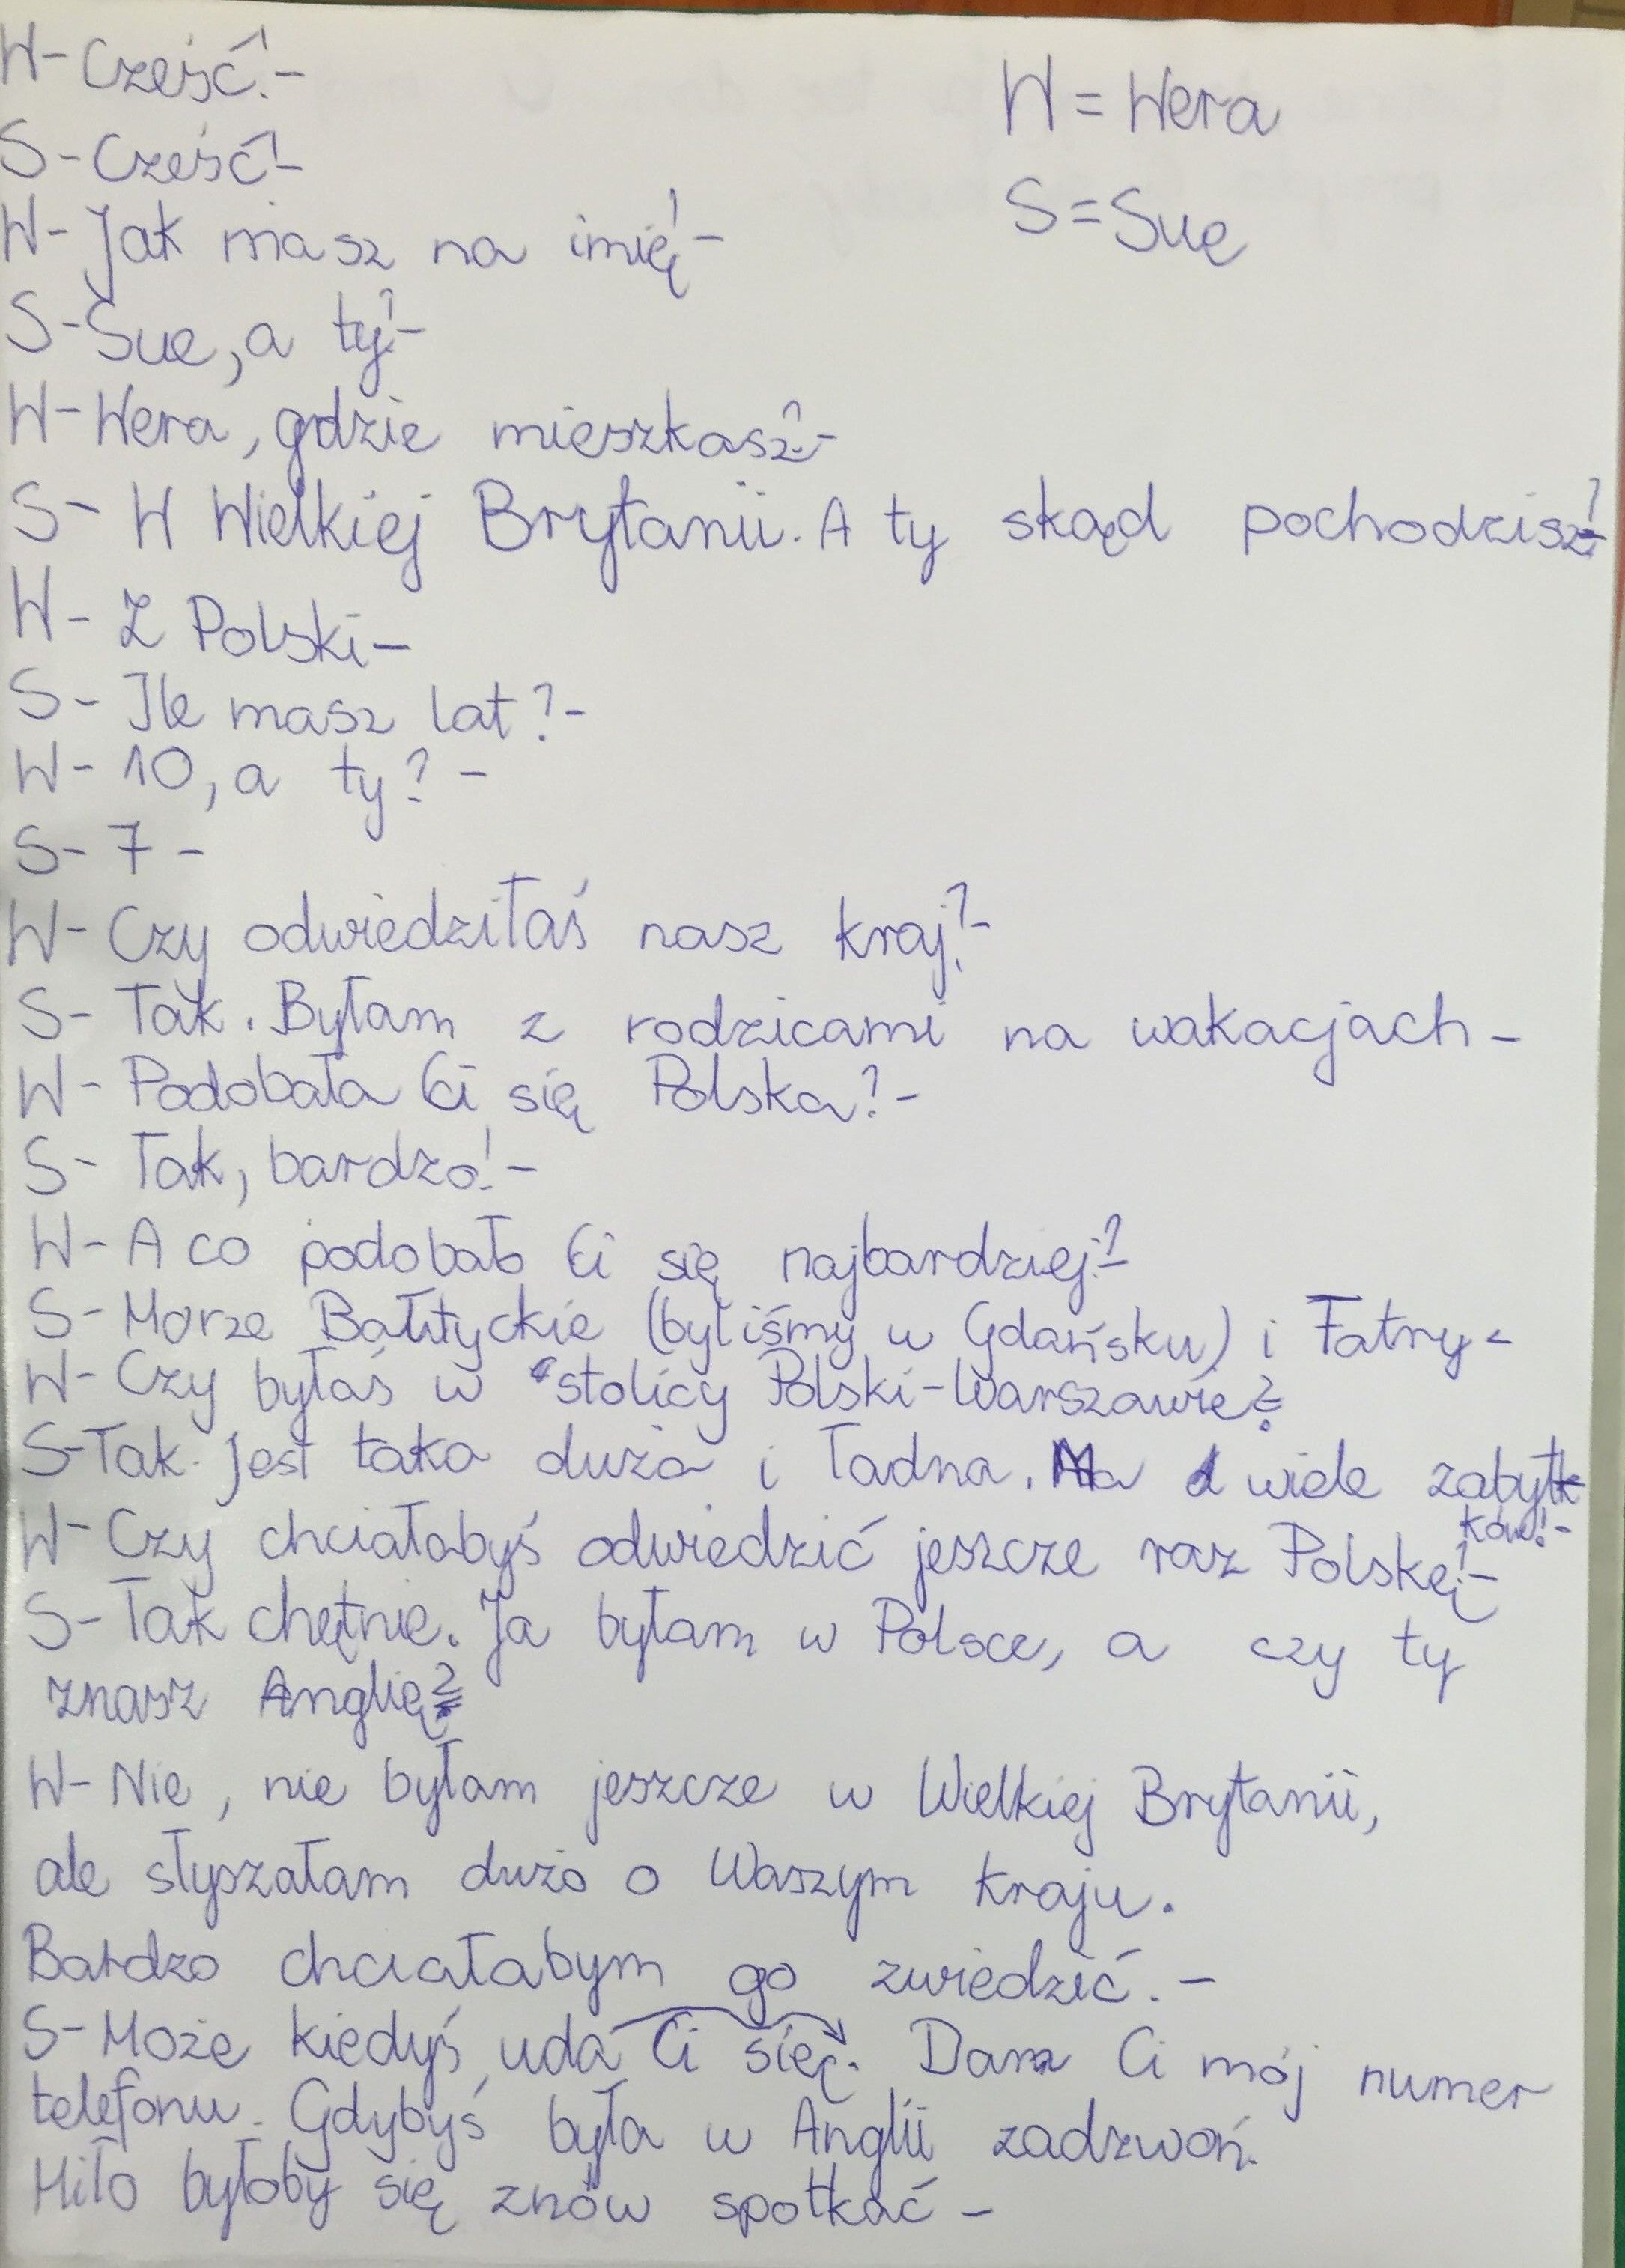 W- Cześć!-
W = Wera
S- Cześć!-
S = Sue
W- Jak masz na imię?-
S- Sue, a ty?-
W- Wera, gdzie mieszkasz?-
S- W Wielkiej Brytanii. A ty skąd pochodzisz?-
W- Z Polski-
S- Ile masz lat?-
W- 10, a ty? -
S- 7 -
W- Czy odwiedziłaś nasz kraj?-
S- Tak. Byłam z rodzicami na wakacjach -
W- Podobała Ci się Polska?-
S- Tak, bardzo!-
W- A co podobało Ci się najbardziej?-
S- Morze Bałtyckie (byliśmy w Gdańsku) i Tatry-
W- Czy byłaś w stolicy Polski-Warszawie?-
S-Tak. Jest taka duża i ładna. Ma wiele zabyt-
ków!-
W- Czy chciałabyś odwiedzić jeszcze raz Polskę?-
S- Tak chętnie. Ja byłam w Polsce, a czy ty
znasz Anglię?-
W- Nie, nie byłam jeszcze w Wielkiej Brytanii,
ale słyszałam dużo o Waszym kraju.
Bardzo chciałabym go zwiedzić. -
S- Może kiedyś uda Ci się. Dam Ci mój numer
telefonu. Gdybyś była w Anglii zadzwoń.
Miło byłoby się znów spotkać -